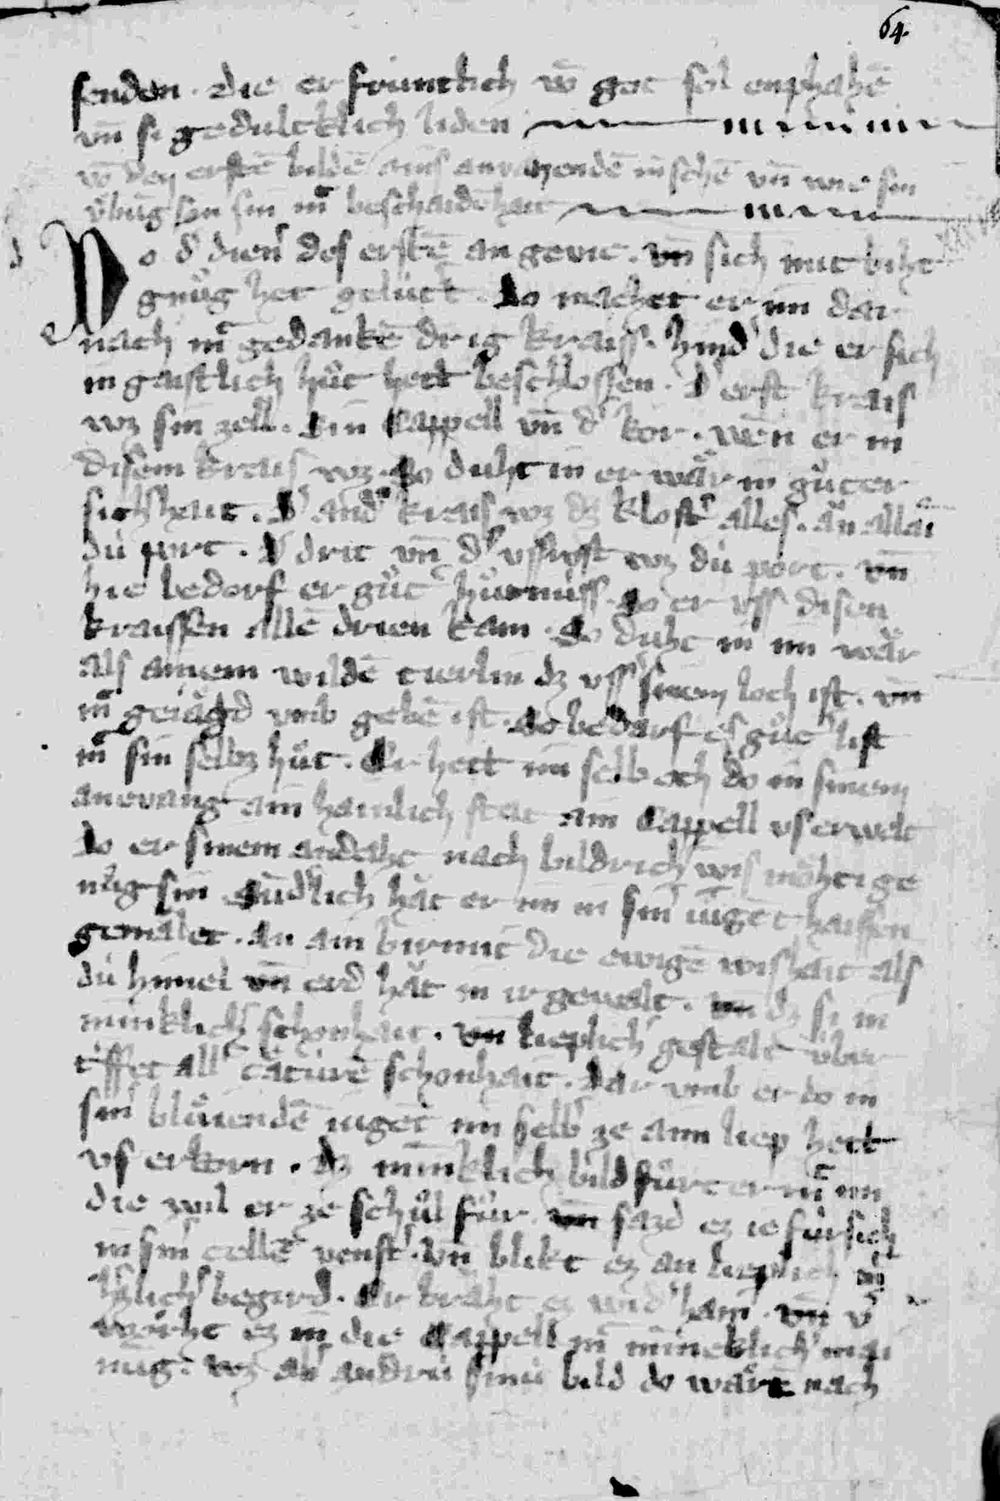 64.
senden. die er frúntlich võ got sol enphahē
vñ si gedultklich liden
võ den erstē bildē ains anvahendē mschē vñ wie sin
v̊būg son sin m̄ beschaidēhait
Do d' dien' des erstē an gevie. vñ sich mit biht
gnůg het gelútt. do machet er im dar
nach m̄ gedankē drig kraiss. hind' die er sich
in gaistlich hůt hett beschlossen. d' erst krais
wz sin zell. sin Cappell vñ d' kor. wēn er in
disem krais wz. so duht in er wår in gůter
sichshait. D' and' krais wz dz klost' alles. ån allain
dú port. D' drit vñ d' vssrost wz dú port. vñ
hie bedorf er gůt' hůtnúss. so er vss disen
kraissen allē drien kam. so duht in im wår
als ainem wildē tierlin dz vss sinem loch ist. vñ
m̄ geiågd vmb gebē ist. so bedarf es gůt' list
m̄ sin selbz hůt. Er hett im selb och do in sinem
anevang ain hainlich stat ain Cappell vserwelt
do er sinem andaht nach bildrich' wis möhti ge
nůg sin Sūd'lich håt er im in sin' iūgēt haissen
gemalet. an ain birmit die ewigē wishait als
dú himel vñ erd håt in ir gewalt. vñ dz si in
minklich' schonhait. vñ lieplich' gestalt v̊ber
triffet all' c̄atúrē schonhait. Dar vmb er do in
sin' blůiendē iugēt im selb' ze aim liep hett
vs erkorn. Dz mīnklich bild fůrt er m̄ im
die wil er ze schůl fůr. vñ sazd ez ie fúr sich
in sin' cellē venst'. vñ blikt ez an lieplich mit
h'zlich' begird. Er bråht ez wid' haim. vñ v'
worht ez in die Cappell m̄ mineklich' mai
nūg. wz an andrú sinú bild do wårē nach